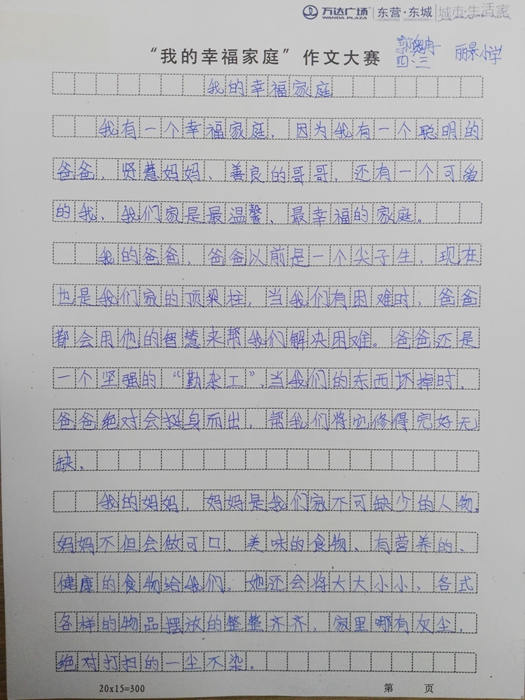 万达广场 WANDA PLAZA 东营·东城 城市·生活家
“我的幸福家庭”作文大赛
四.三 丽景小学
我的幸福家庭
我有一个幸福家庭，因为我有一个聪明的
爸爸，贤慧妈妈、善良的哥哥，还有一个可爱
的我，我们家是最温馨、最幸福的家庭。
我的爸爸，爸爸以前是一个尖子生，现在
也是我们家的顶梁柱，当我们有困难时，爸爸
都会用他的智慧来帮我们解决困难。爸爸还是
一个坚强的“勤杂工”，当我们的东西坏掉时，
爸爸绝对会挺身而出，帮我们将它修得完好无
缺。
我的妈妈，妈妈是我们家不可缺少的人物。
妈妈不但会做可口、美味的食物、有营养的、
健康的食物给我们，她还会将大大小小、各式
各样的物品摆放的整整齐齐，家里哪有灰尘，
绝对打扫的一尘不染。
20x15=300 第 页